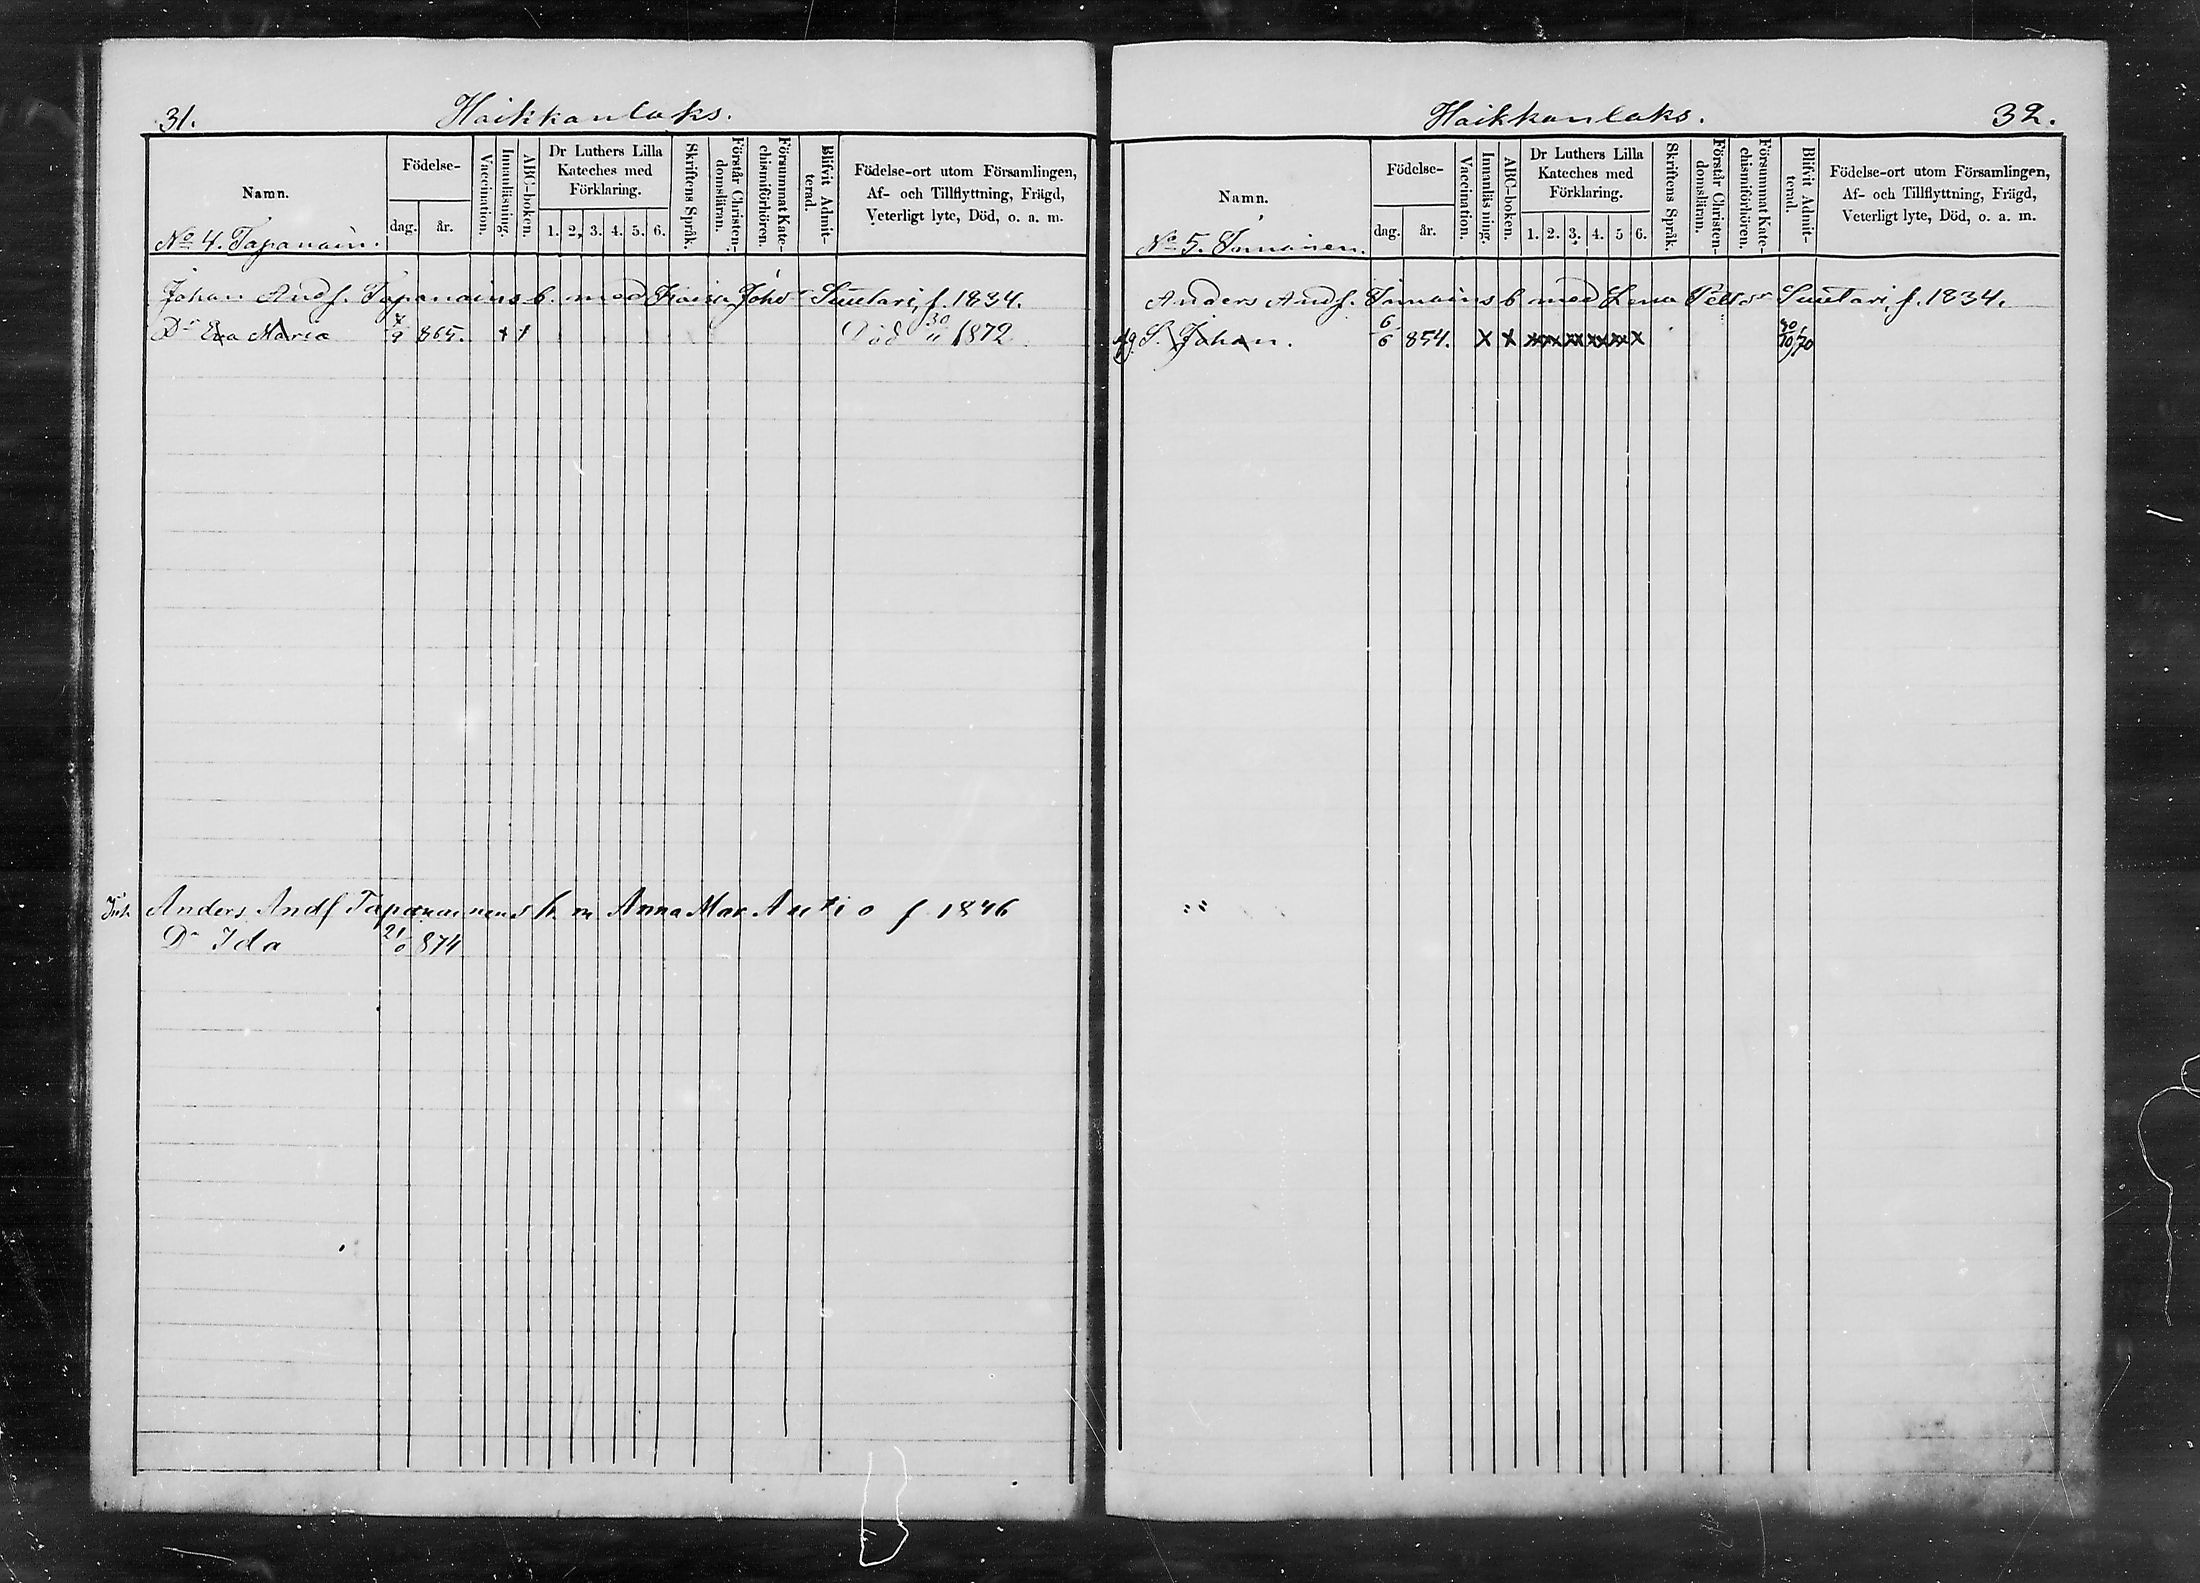 31.
Haikkanlaks.
Namn.
Födelse-
dag.
år.
Vaccination.
Innanläsning.
ABC-boken.
Dr Luthers Lilla
Kateches med
Förklaring.
1. 2. 3. 4. 5. 6.
Skriftens Språk.
Förstår Christen-
domsläran.
Försummat Kate-
chismiförhören.
Blifvit Admit-
terad.
Födelse-ort utom Församlingen,
Af- och Tillflyttning, Frägd,
Veterligt lyte, Död, o. a. m.
No 4. Tapanain.
Johan Andf. Tapanains b. med Kaisa Johdr Suutari, f. 1834.
Dr Eva Maria 865. Död 30/11 1872
Anders Andf Tapanainens h m Anna Mar Autio f 1846
Dr Ida 874
Haikkanlaks.
32.
Namn.
Födelse-
dag.
år.
Vaccination.
Innanläsning.
ABC-boken.
Dr Luthers Lilla
Kateches med
Förklaring.
1. 2. 3. 4. 5 6.
Skriftens Språk.
Förstår Christen-
domsläran.
Försummat Kate-
chismiförhören.
Blifvit Admit-
terad.
Födelse-ort utom Församlingen,
Af- och Tillflyttning, Frägd,
Veterligt lyte, Död, o. a. m.
No 5.
Anders Andf. b med Lena Pettdr Suutari, f. 1834.
S. Johan. 6/6 854. X X 30/10 70